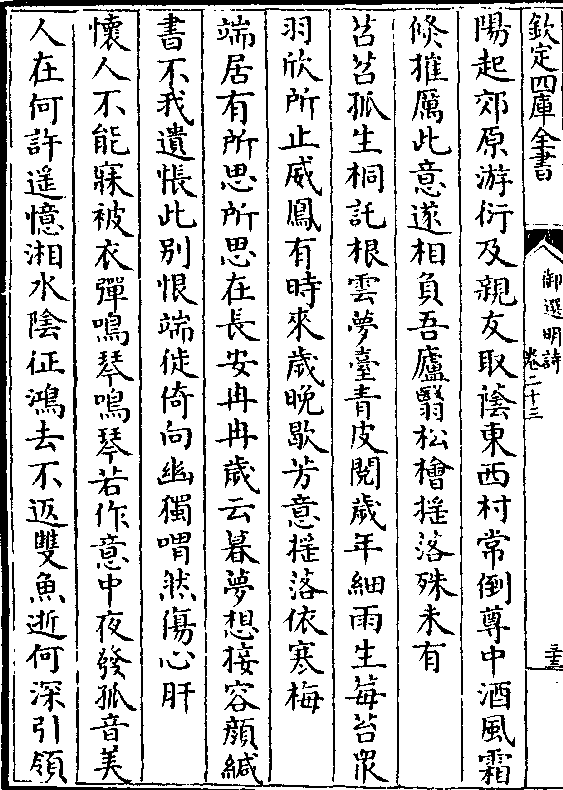 欽定四庫全書
御選明詩
卷二十三
陽起郊原游衍及親友取蔭東西村常倒尊中酒風霜
倐摧厲此意遂相負吾廬翳松檜揺落殊未有
苕苕孤生桐託根雲夢臺青皮閱歲年細雨生莓苔衆
羽欣所止威鳳有時來歲晩歇芳意揺落依寒梅
端居有所思所思在長安冉冉歲云暮夢想接容顔緘
書不我遺悵此別恨端徙倚向幽獨喟然傷心肝
懷人不能寐被衣彈鳴琴鳴琴若作意中夜發孤音美
人在何許遥憶湘水隂征鴻去不返雙魚逝何深引領